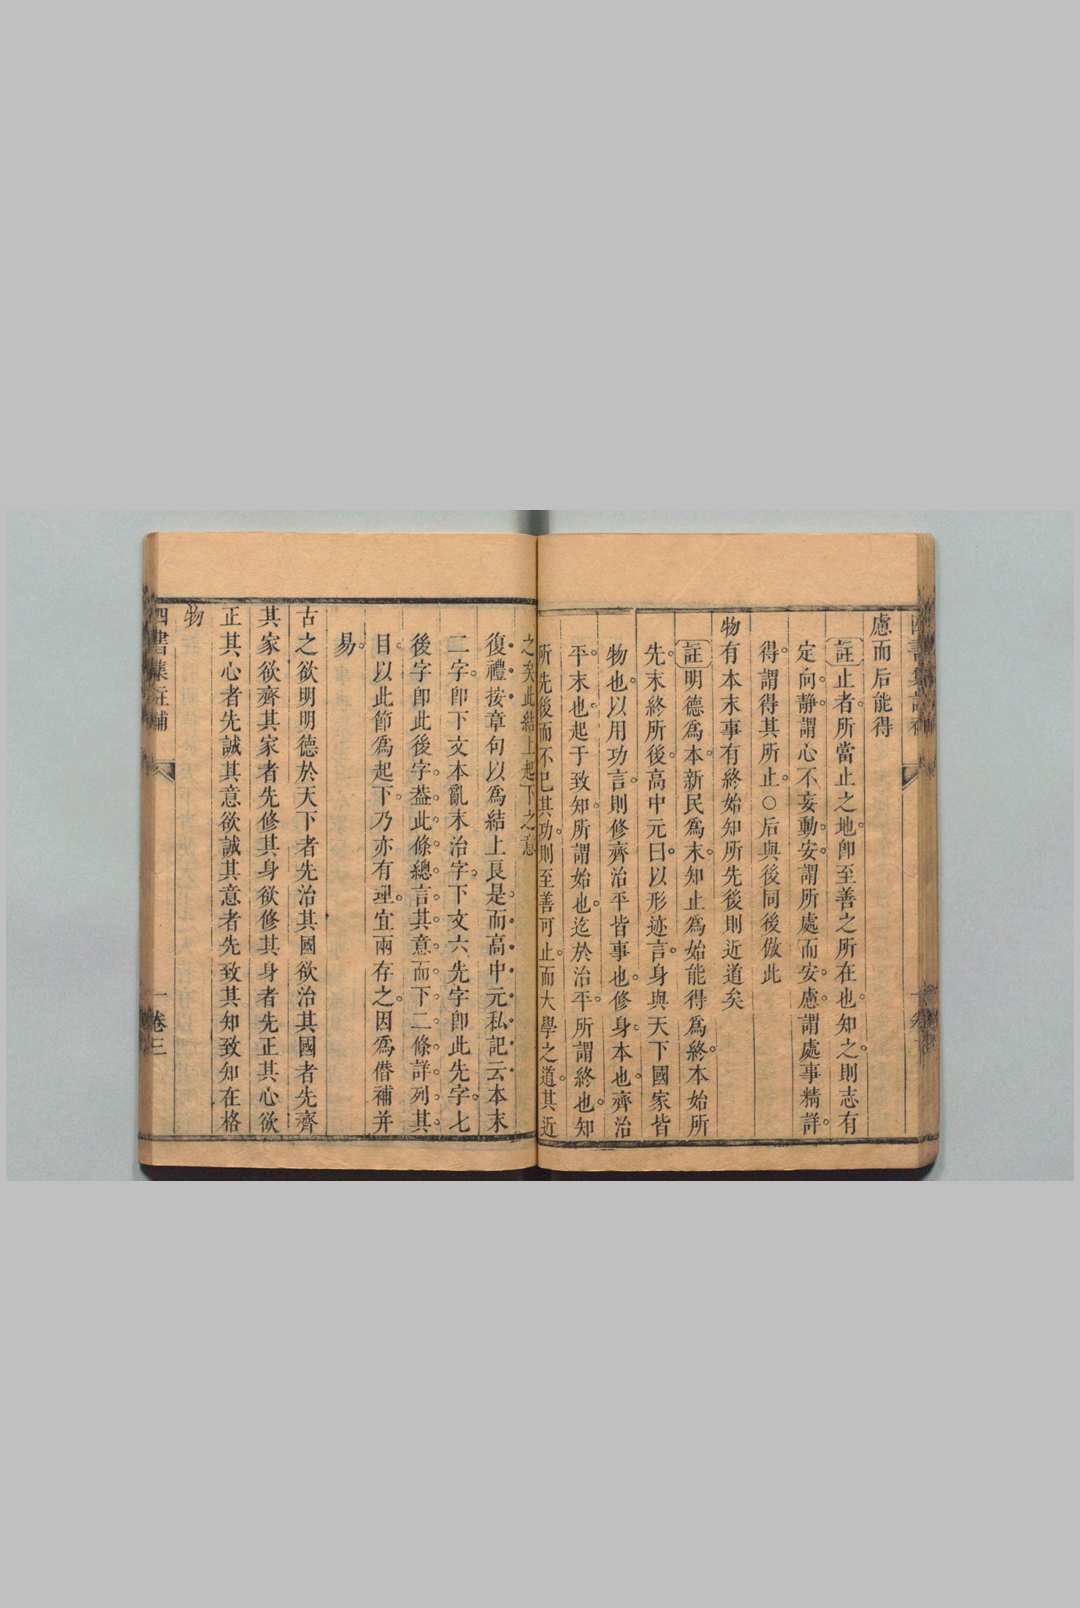 慮而后能得
註止者所當止之地卽至善之所在也知之則志有
定向靜謂心不妄動安謂所處而安慮謂處事精詳
得謂得其所止○后與後同後倣此
物有本末事有終始知所先後則近道矣
註明德爲本新民爲末知止爲始能得爲終本始所
先末終所後高中元曰以形迹言身與天下國家皆
物也以用功言則修齊治平皆事也修身本也齊治
平末也起于致知所謂始也迄於治平所謂終也知
所先後而不已其功則至善可止而大學之道其近
之矣此結上起下之意
復禮按章句以爲結上良是而高中元私記云本末
二字卽下文本亂末治字下文六先字卽此先字七
後字卽此後字葢此條總言其意而下二條詳列其
目以此節爲起下乃亦有理宜兩存之因爲僭補并
易
古之欲明明德於天下者先治其國欲治其國者先齊
其家欲齊其家者先修其身欲修其身者先正其心欲
正其心者先誠其意欲誠其意者先致其知致知在格
物
四書集註補
卷三